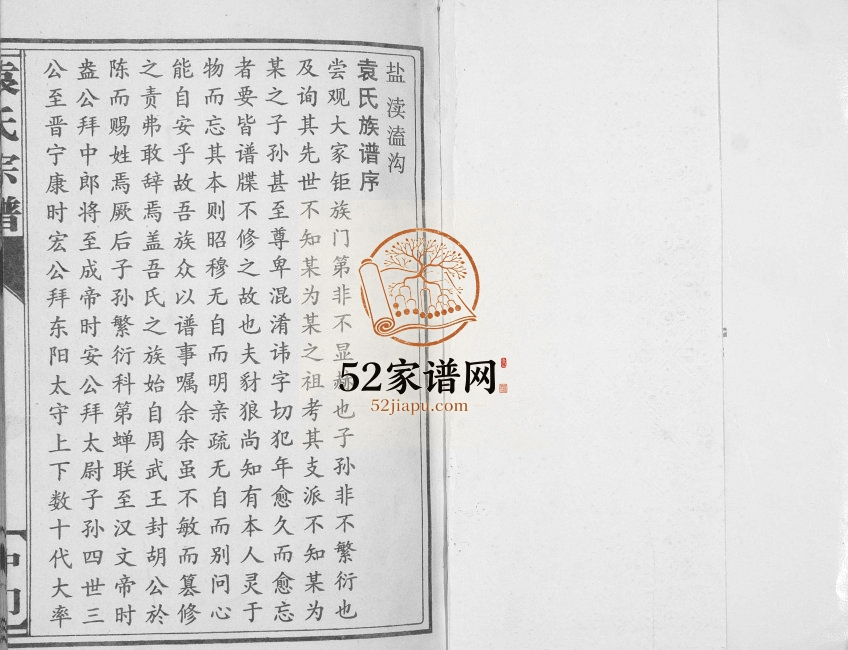 盐渎溘沟
袁氏族谱序
尝观大家钜族门第非不显赫也子孙非不繁衍也
及询其先世不知某为某之祖考其支派不知某为
某之子孙甚至尊卑混淆讳字切犯年愈久而愈忘
者要皆谱牒不修之故也夫豺狼尚知有本人灵于
物而忘其本则昭穆无自而明亲疏无自而别问心
能自安乎故吾族众以谱事嘱余余虽不敏而篡修
之责弗敢辞焉盖吾氏之族始自周武王封胡公於
陈而赐姓焉厥后子孙繁衍科第蝉联至汉文帝时
盎公拜中郎将至成帝时安公拜太尉子孙四世三
公至晋宁康时宏公拜东阳太守上下数十代大率
袁氏宗谱
52家谱网
52jiapu.com